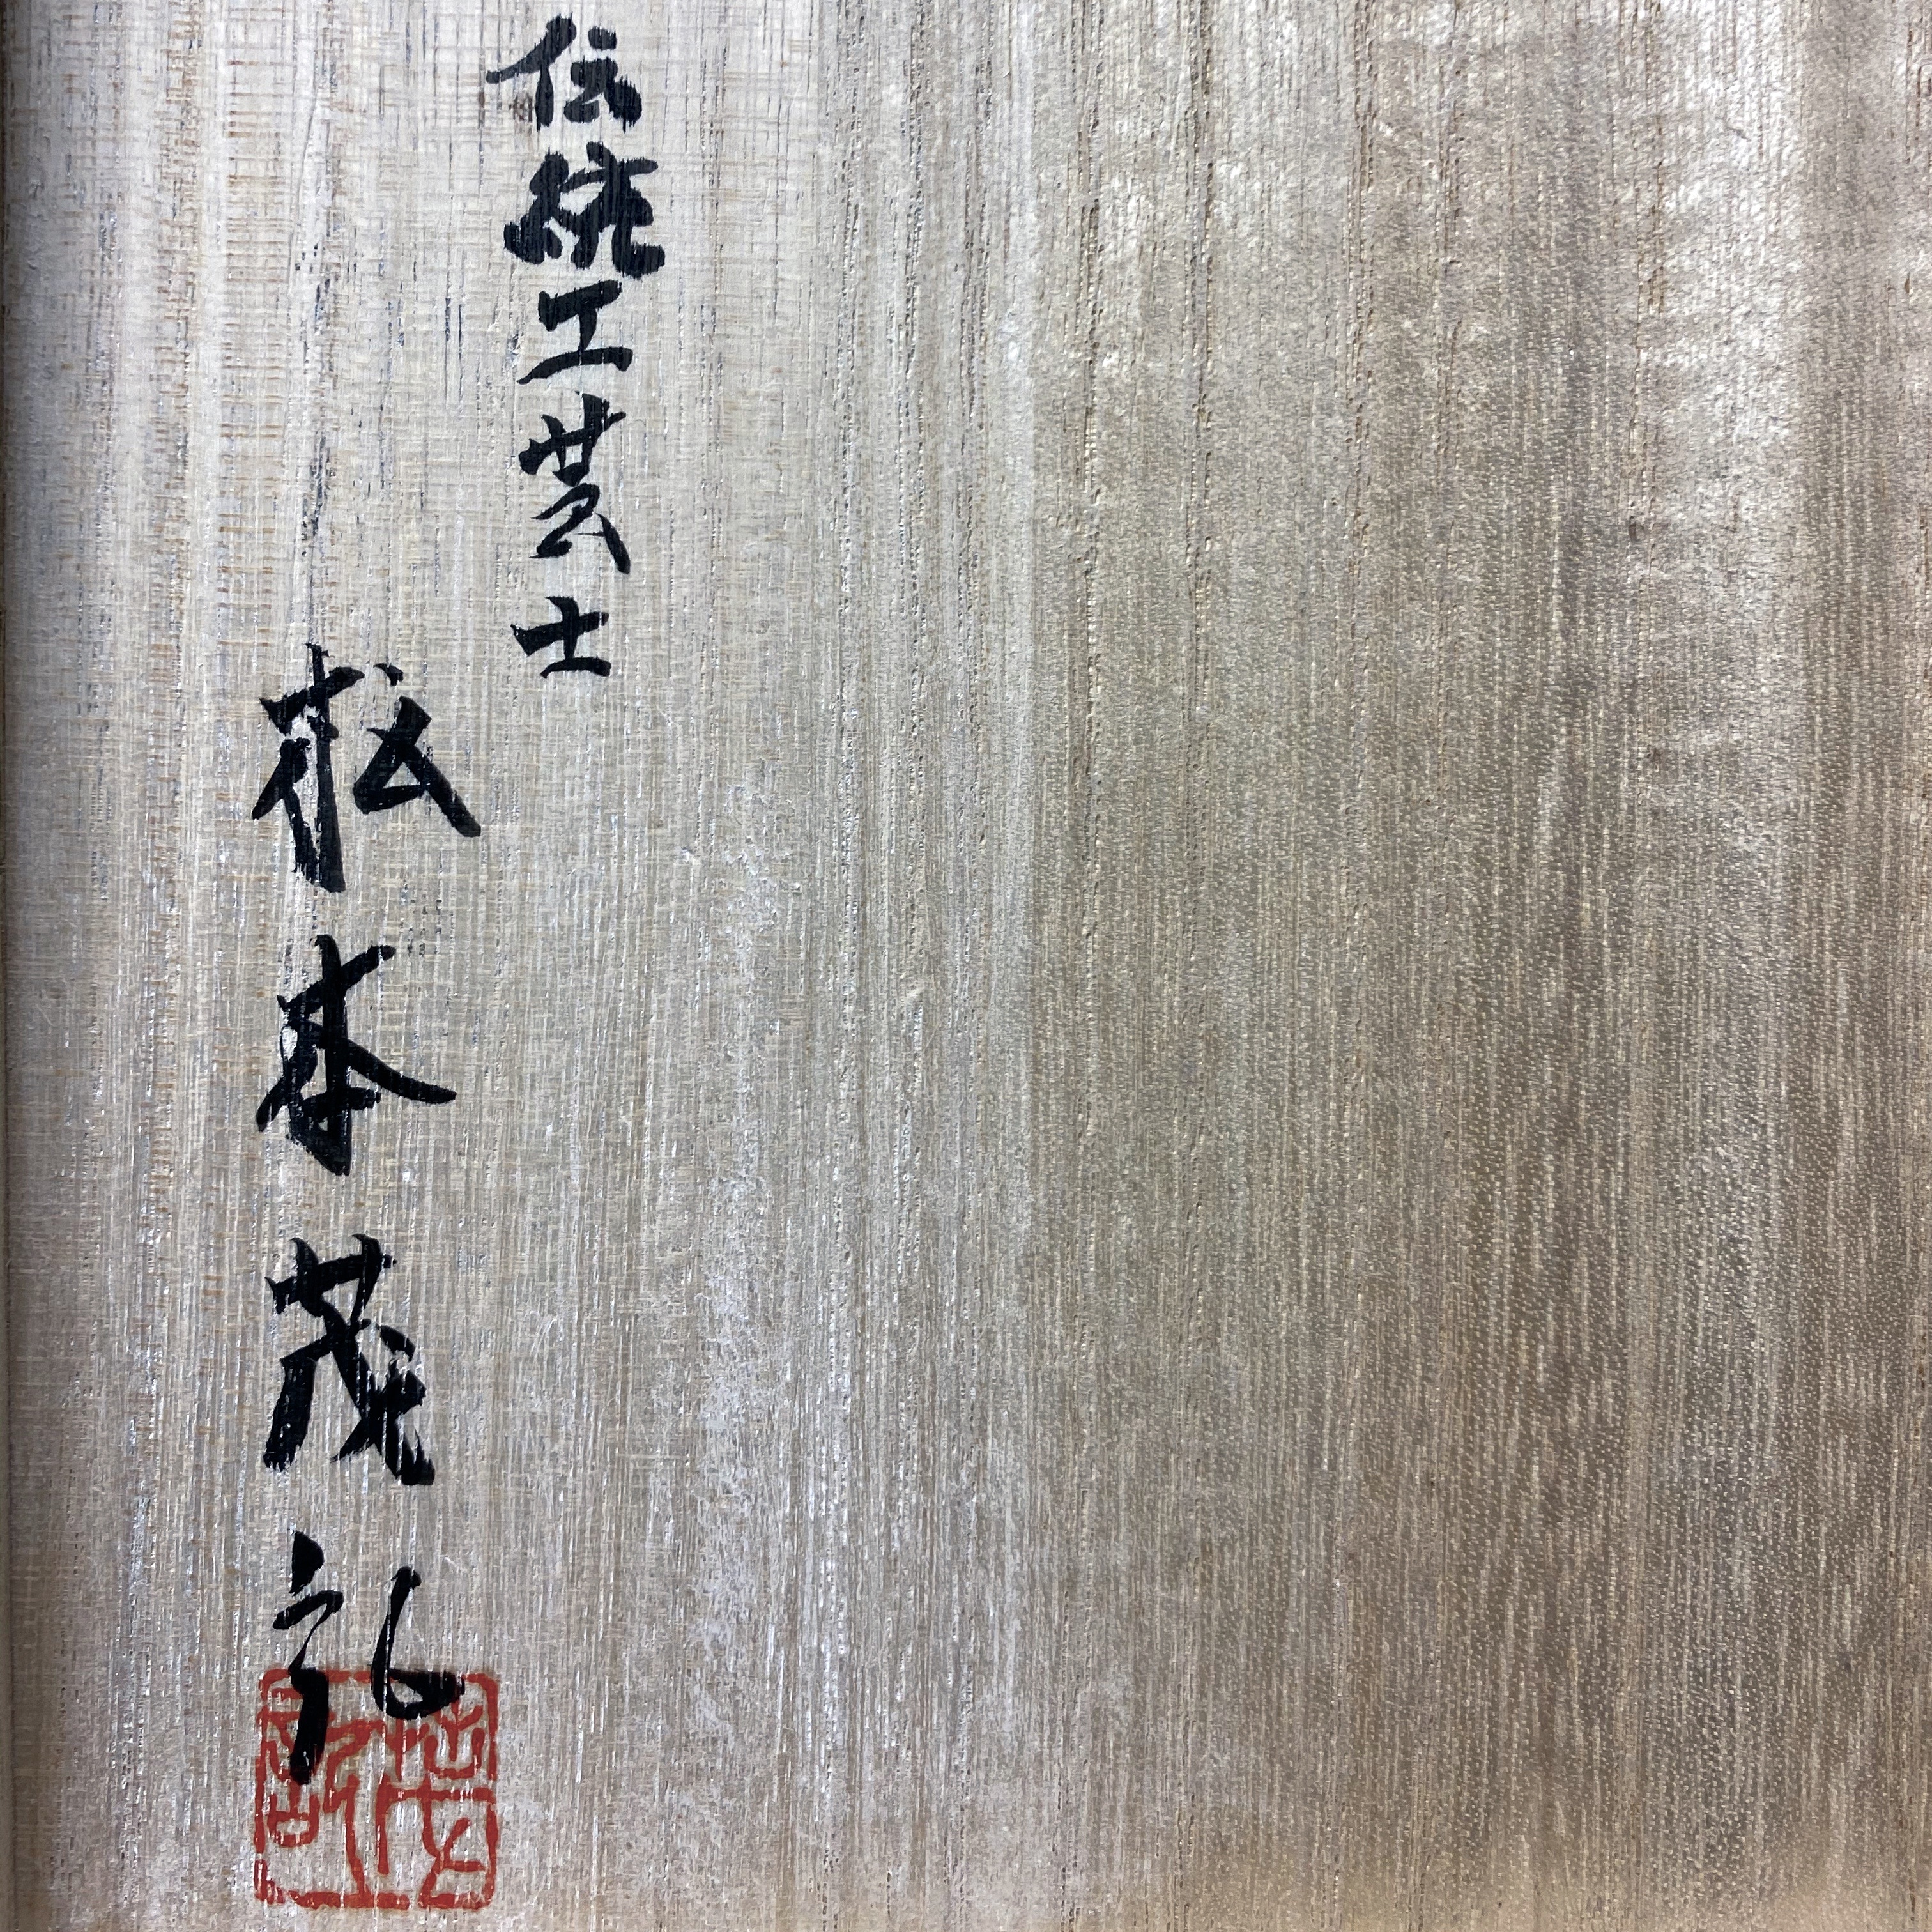 伝統工芸士
松本茂礼